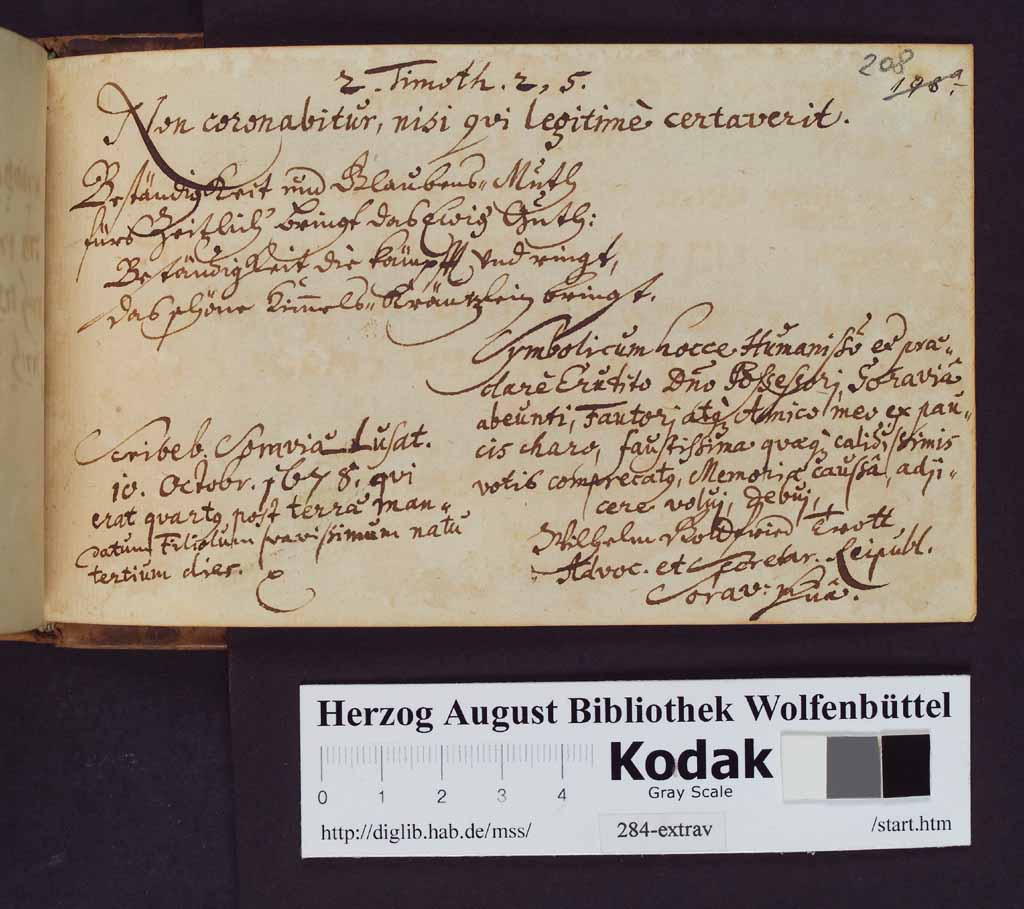 208
198a.
2. Timoth. 2, 5.
Non coronabitur, nisi qvi legitimè certaverit.
Beständigkeit und Glaubens-Muth
fürs Zeitlich' bringt das Ewig Guth:
Beständigkeit die kämpfft und ringt,
das schöne Himmels-Kräntzlein bringt.
Symbolicum hocce Humanissō et præ-
clarè Erutito Dn̄o Possessori, Soraviâ
abeunti, Fautori atq Amico meo ex pau-
cis charo, faustissima quæq calidissimis
votis comprecatq, Memoriæ caussâ, adji-
cere volui, debui,
Wilhelm Trott
Advoc. et Secretar. Reipubl.
Sorav: mpuâ.
Scribeb. Soraviæ Lusat.
10. Octobr. 1678. qvi
erat qvartq post terræ man-
datum Filiolum svavissimum natu
tertium dies.
Herzog August Bibliothek Wolfenbüttel
Kodak
Gray Scale
0 1 2 3 4
http://diglib.hab.de/mss/ 284-extrav /start.htm